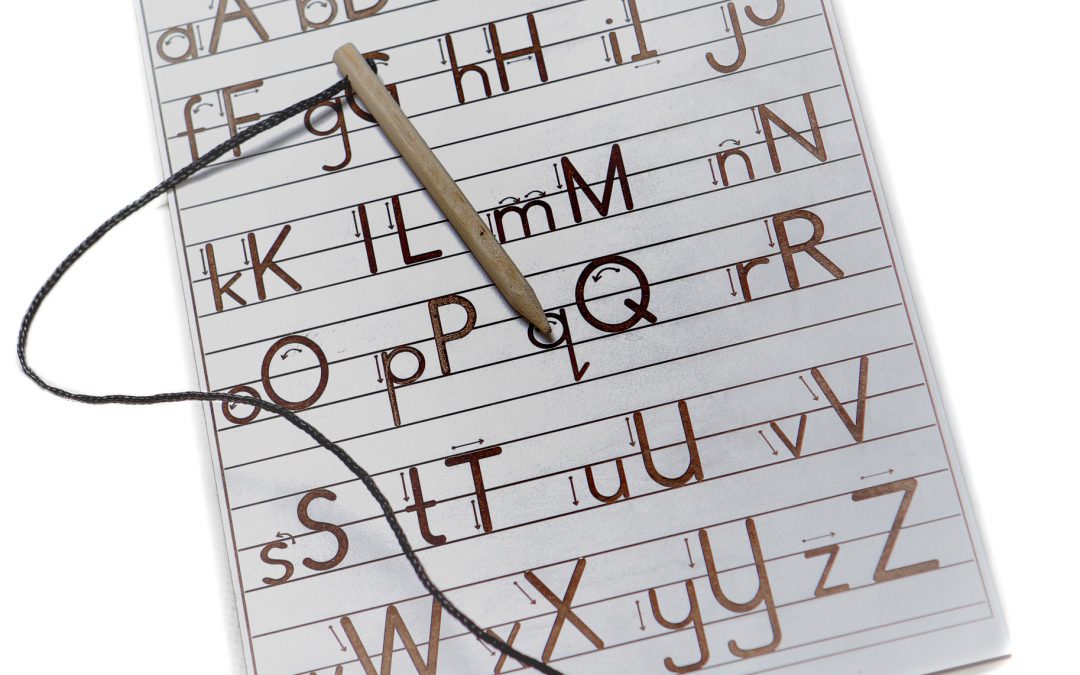 aA bB
fF gG hH iI jJ
kK lL mM nN
oO pP qQ rR
sS tT uU vV
wW xX yY zZ